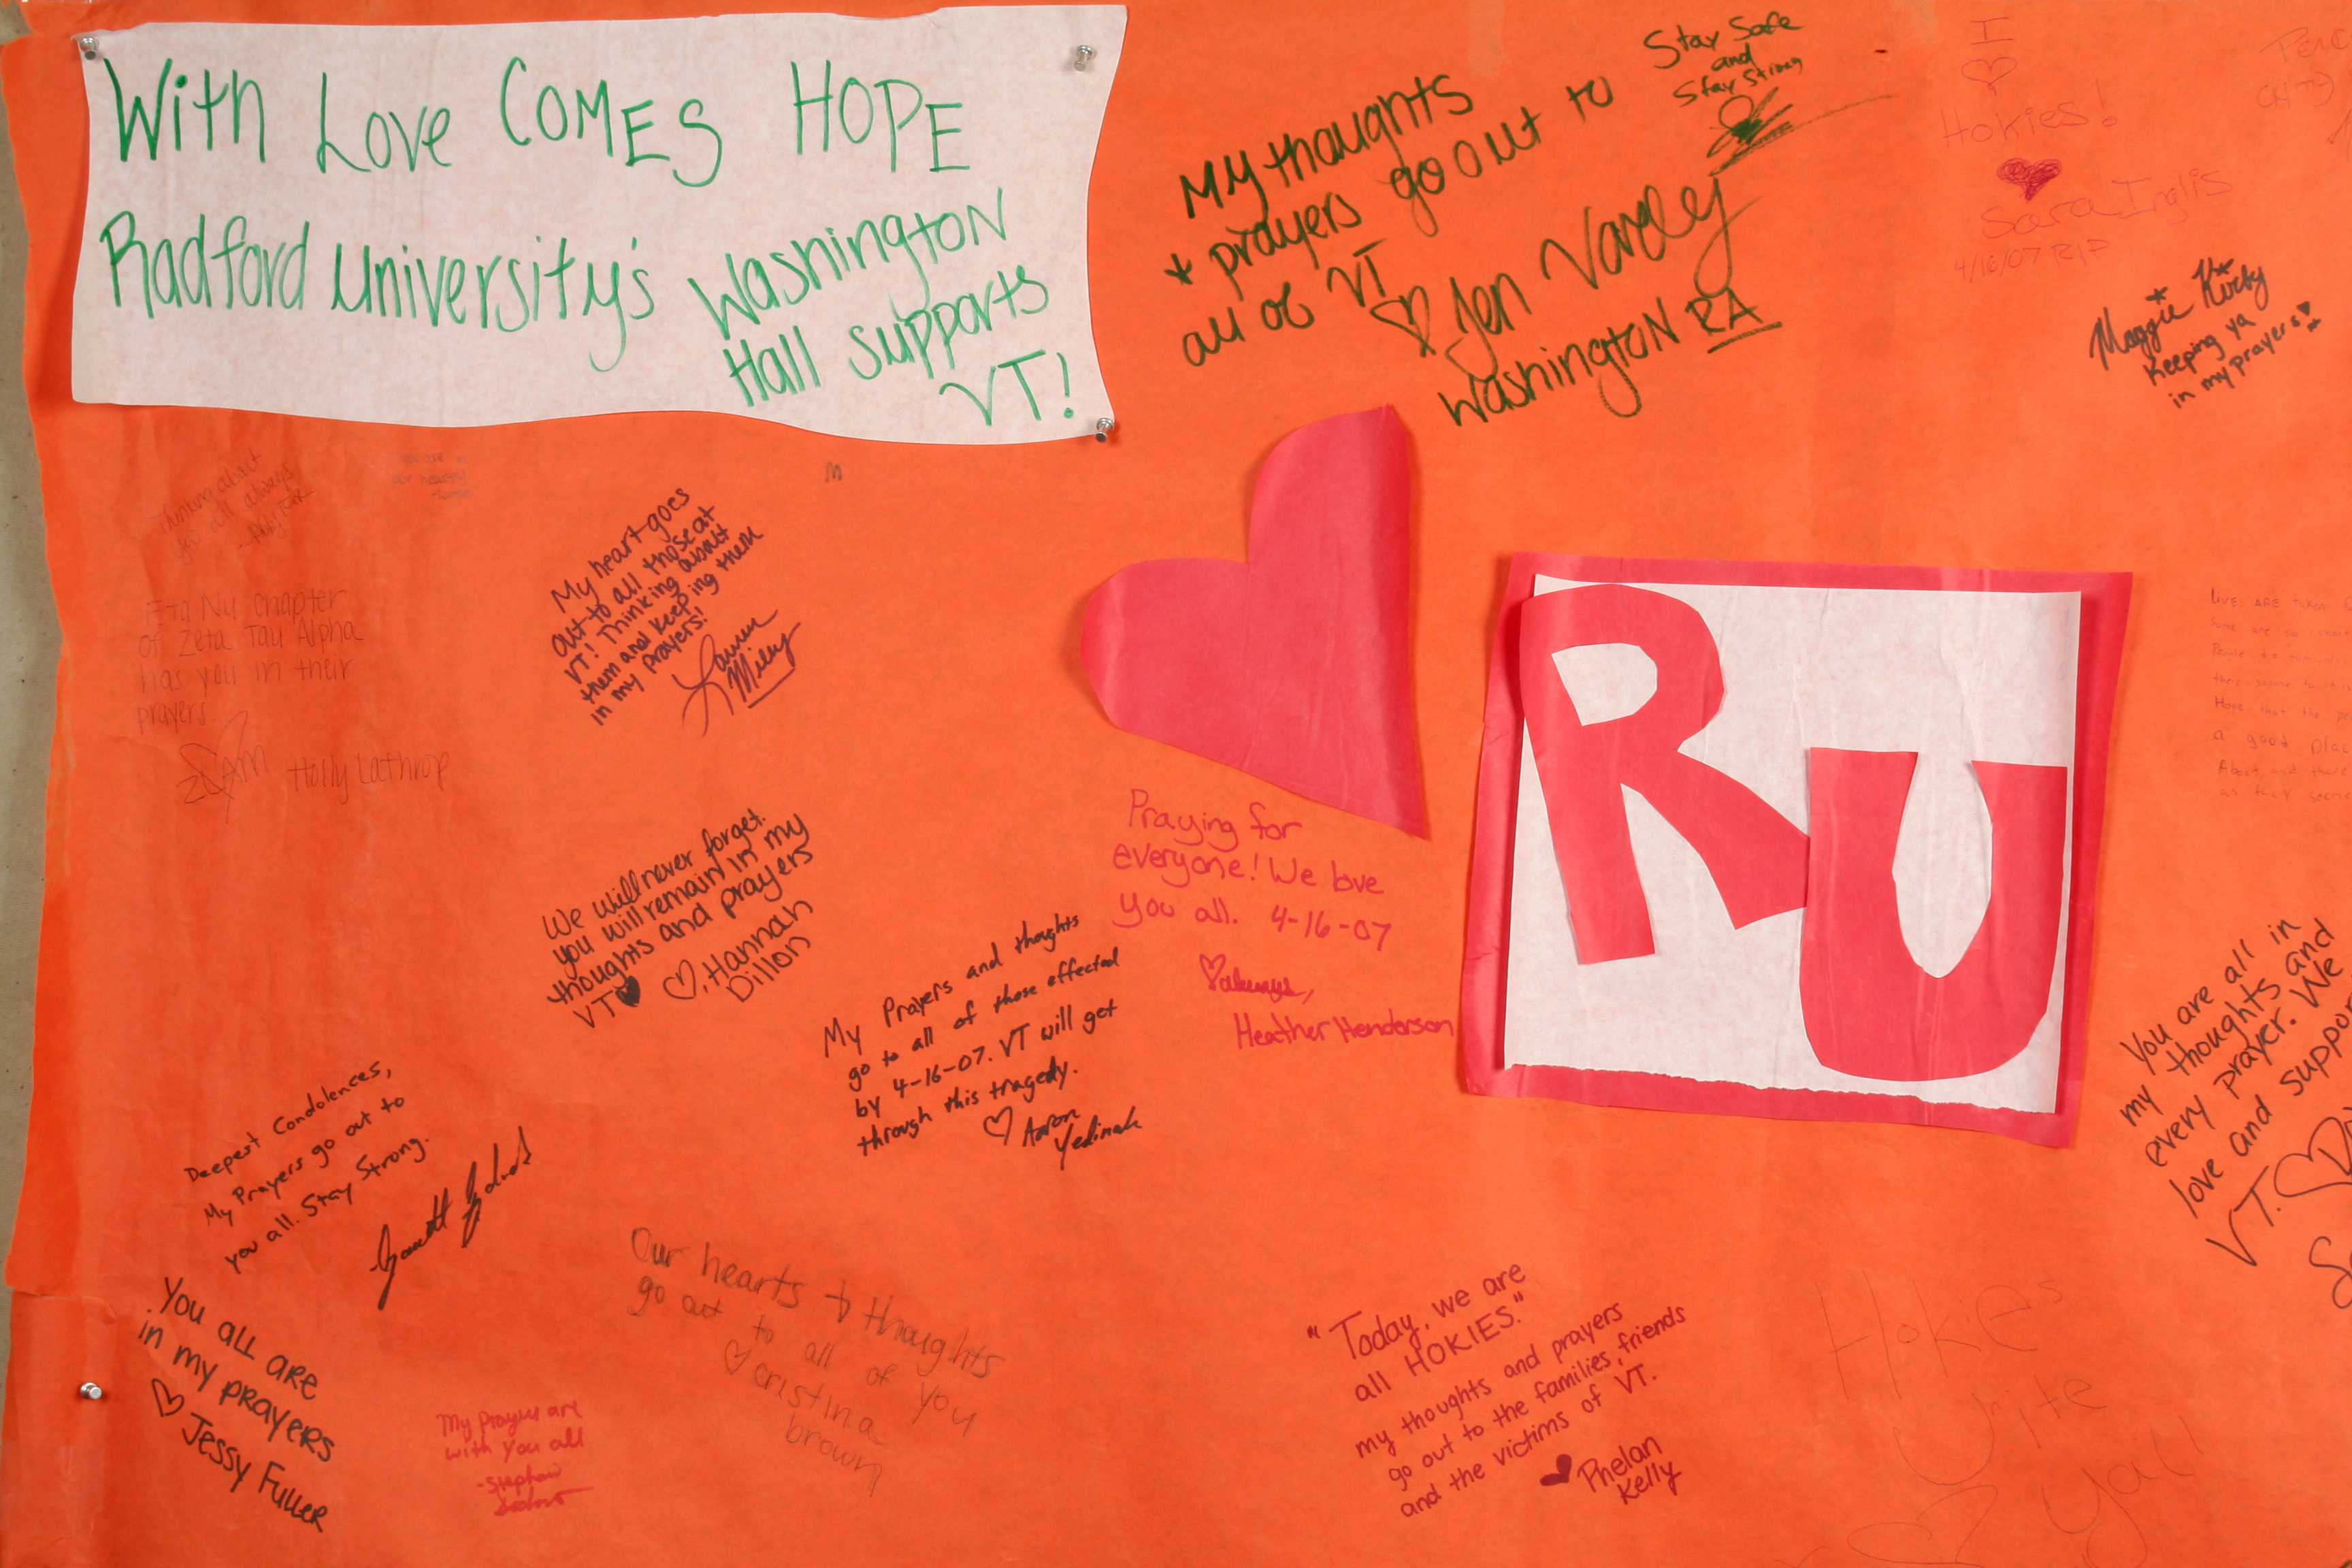 With Love COMES HOPE
Radford University's Washington
Hall supports
VT!
My thoughts
* prayers go out to
all of VT
Jen Vardey
Washington RA
Stay Safe
and
Stay Strong
I
Hokies!
Sara Inglis
4/16/07 RIP
Maggie Kirby
Keeping ya
in my prayers
Thinking about
you all always
You are in
our hearts!
My heart goes
out to all those at
VT! Thinking about
them and keeping them
in my prayers!
Lauren
Milly
Eta Nu Chapter
of Zeta Tau Alpha
has you in their
prayers.
Holly Lathrop
RU
LIVES ARE taken
Some are so
People
there
Hope that the
a good plac
About, and there
as they seem
We will never forget.
you will remain in my
thoughts and prayers
VT
Hannah
Dillon
Praying for
everyone! We love
you all. 4-16-07
always,
Heather Henderson
My Prayers and thoughts
go to all of those effected
by 4-16-07. VT will get
through this tragedy.
Aaron
Yedinak
You are all in
my thoughts and
every prayer. We
love and suppor
VT.
Deepest Condolences,
My Prayers go out to
you all. Stay Strong.
You all ARE
in my prayers
Jessy Fuller
My prayers are
with you all
Our hearts + thoughts
go out to all of you
cristina
brown
"Today, we are
all HOKIES."
my thoughts and prayers
go out to the families, friends
and the victims of VT.
Phelan
Kelly
Hokies
Unite
y'all